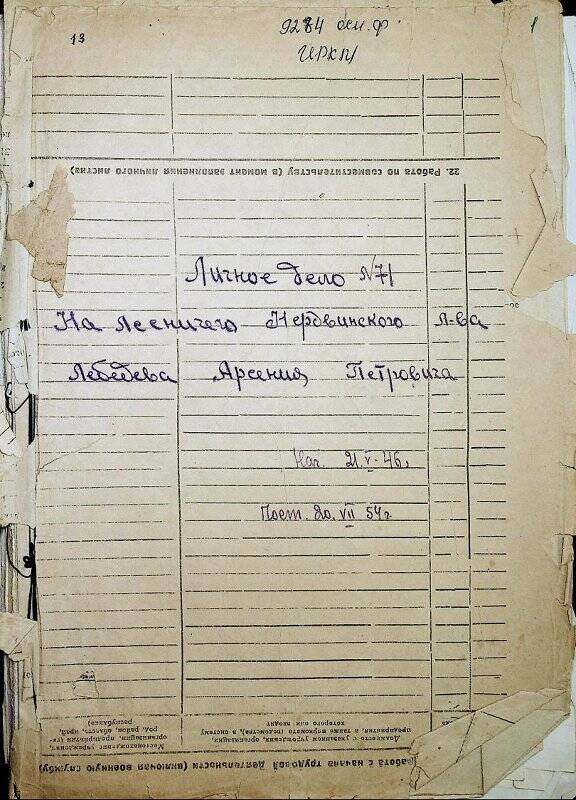 13
9284 осн. ф.
ИРКМ
1
22. Работа по совместительству (в момент заполнения личного листка)
Личное дело №71
На лесничего Нердвинского л-ва
Лебедева Арсения Петровича
Нач. 21.V-46г
20. VII 54г.
Местонахождение учреждения,
организации, предприятия (го-
род, район, область, край,
республика)
Должность с указанием учреждения, организации,
предприятия, а также наркомата (ведомства), в систему
которого они входят
работа с начала трудовой деятельности (включая военную службу)